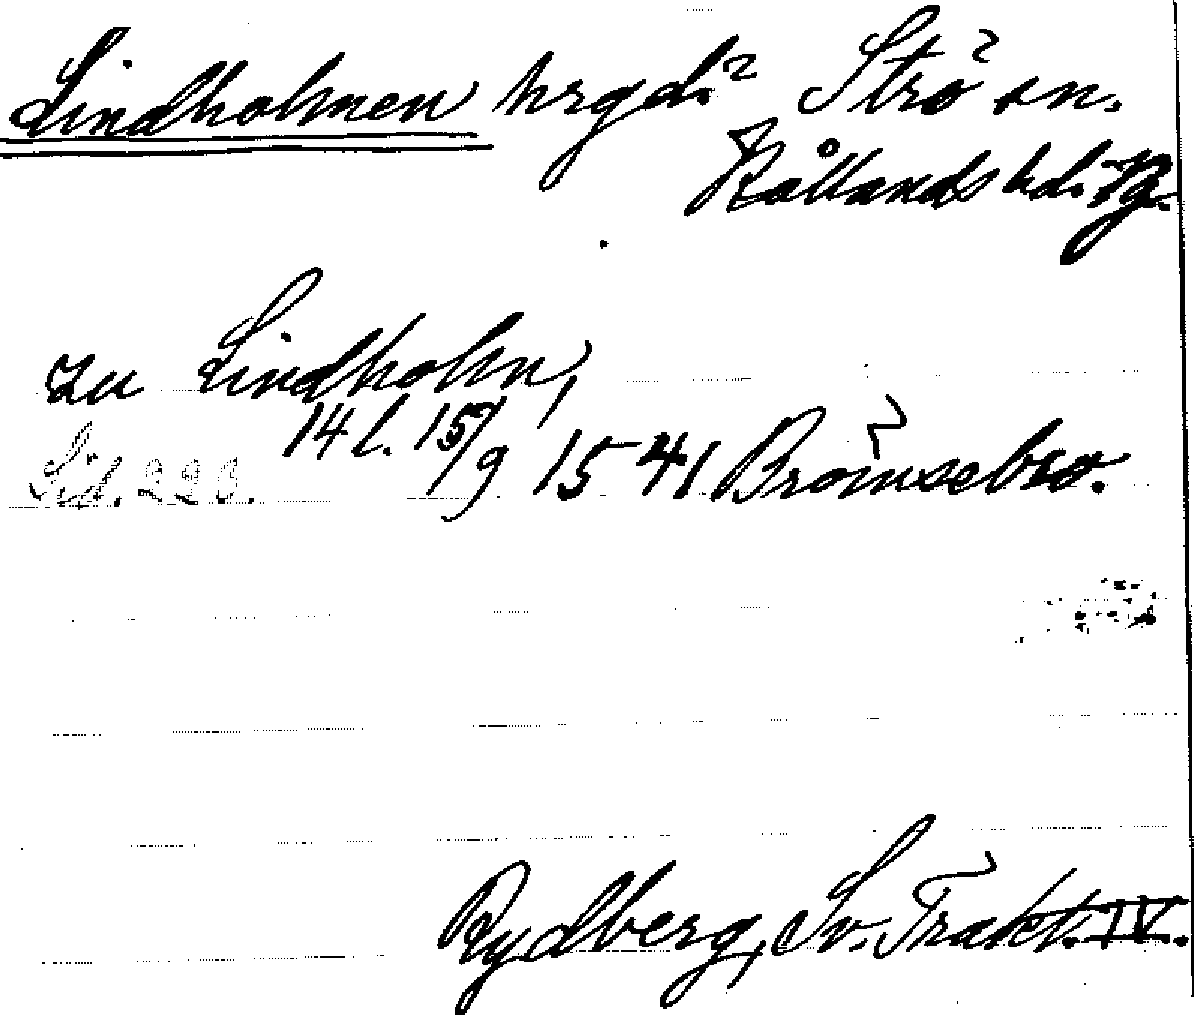 Lindholmen hrgd.? Strö sn.
Kållands hd. Vg.
zu Lindholm,
14 l. 15/9 1541 Brömsebro.
Sid. 220.
Rydberg, Sv. Trakt. IV.